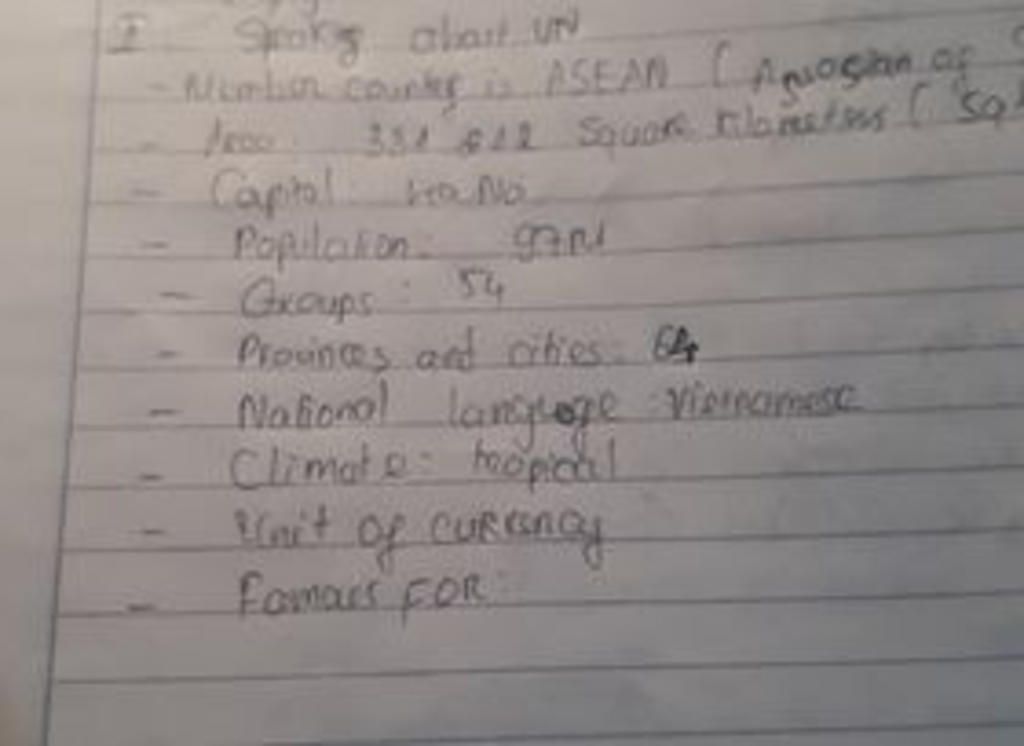 I Speaking about VN
- Member country is ASEAN ( of
- Area: 331 212 Square kilometers (
- Capital: Ha No
- Population:
- Groups: 54
- Provinces and cities: 64
- National language: Vietnamese
- Climate: tropical
- Unit of currency
- Famous FOR: